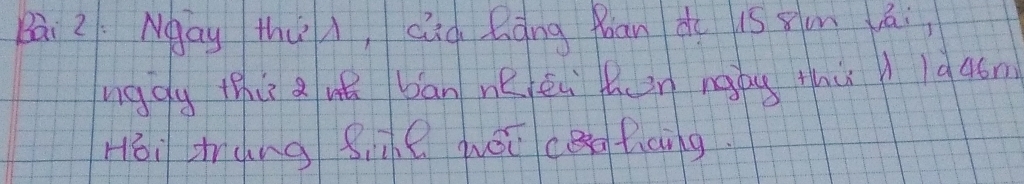 Bài 2: Ngày thứ 1, cửa hàng bán đc 158m vải,
ngày thứ 2 bán nhiều hơn ngày thứ 1 là 96m
Hỏi trung bình mỗi hàng.